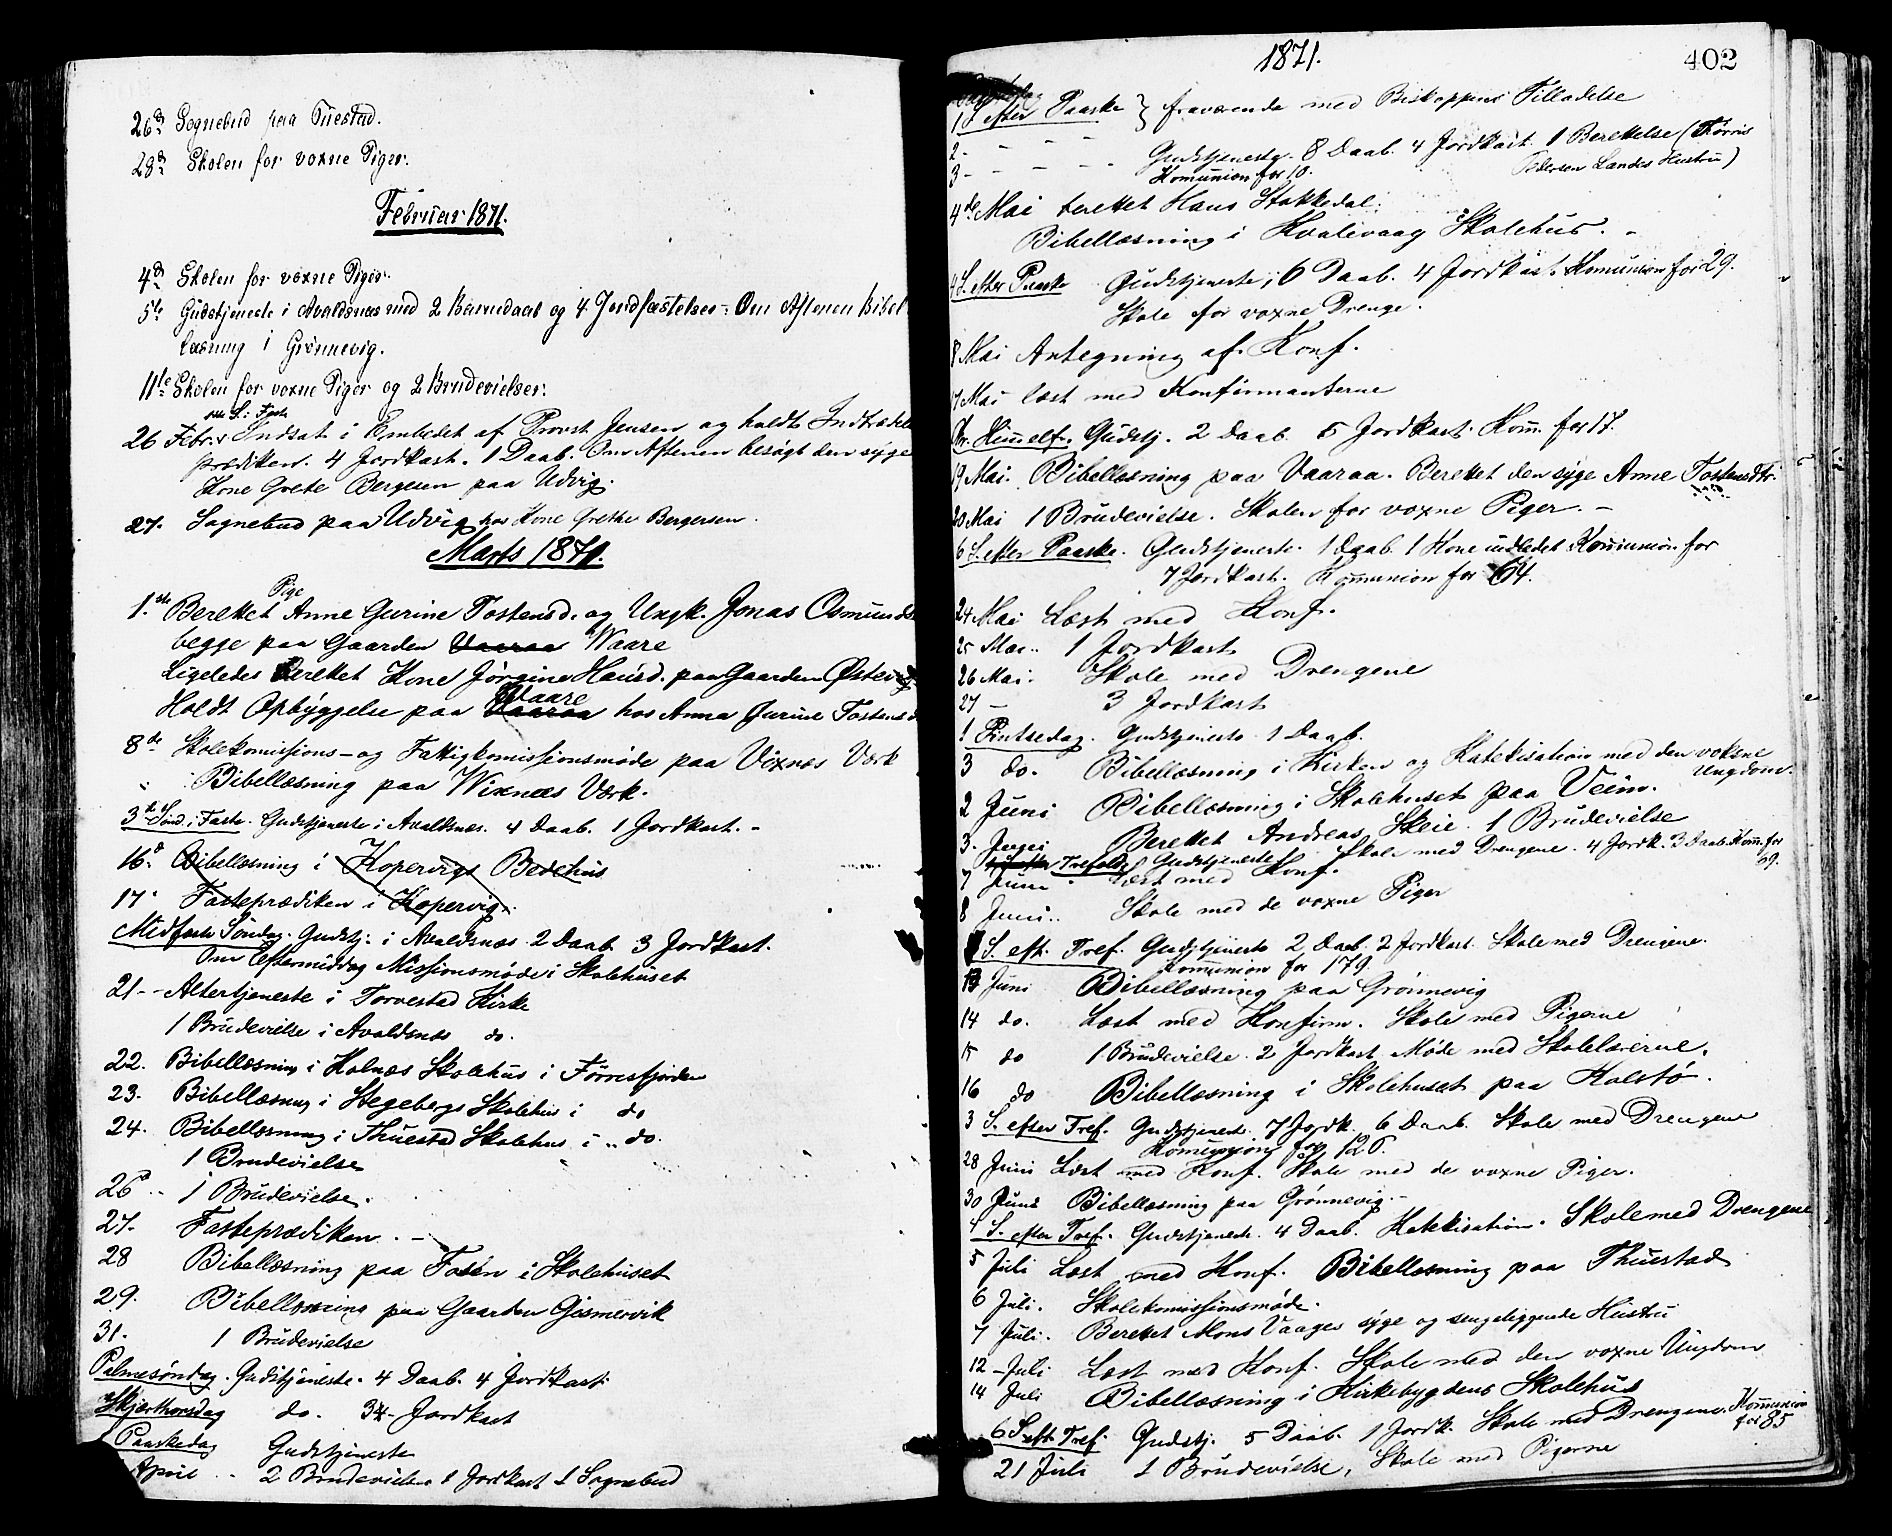 26de Sognebud paa Tuestad.
28de Skolen for voxne Piger.
Februar 1871.
4de Skolen for voxne Piger.
5te Gudstjeneste i Avaldsnæs med 2 Barnedaab og 4 Jordfæstelser - Om Aftenen Bibel
læsning i Grønnevig.
11te Skolen for voxne Piger og 2 Brudevielser.
1ste S. i Faste
26 Febr. Indsat i Embedet af Provst Jensen og holdt Indtrædel
prædiken. 4 Jordkast. 1 Daab. Om Aftenen besøgt den syge
Kone Grete Bergesen paa Udvig.
27. Sognebud paa Udvig hos Kone Grethe Bergersen.
Marts 1871.
Pige
1.ste Berettet Anne Gurine Tostensd. og Ungk. Jonas Osmunds
begge paa Gaarden Vaaraa Waare
Ligeledes Berettet Kone Jørgine Hansd. paa Gaarden Østevig
Waare
Holdt Opbyggelse paa Vaaraa hos Anna Gurine Tostensd
8de Skolekomissions- og Fattigkomissionsmøde paa Vixnes Værk
" Bibellæsning paa Wixnæs Værk.
3de Sønd. i Faste. Gudstjeneste i Avaldsnæs. 4 Daab. 1 Jordkast. -
16.d Bibellæsning i Kopervigs Bedehus
17. Fasteprædiken i Kopervig.
Midfaste Søndag. Gudstj. i Avaldsnæs 2 Daab 3 Jordkast.
Om Eftermiddag Missionsmøde i Skolehuset
21 - Altertjeneste i Torvestad Kirke
1 Brudevielse i Avaldsnæs do.
22. Bibellæsning i Kolnæs Skolehus i Førresfjorden
23. Bibellæsning i Stegebergs Skolehus i do
24. Bibellæsning i Thuestad Skolehus i " do.
1 Brudevielse
26d .. 1 Brudevielse.
27. Fasteprædiken. -
28 Bibellæsning paa Fosen i Skolehuset
29. Bibellæsning paa Gaarden Gismervik
31. 1 Brudevielse
Palmesøndag. Gudstjeneste. 4 Daab. 4 Jordkast.
Skjærthorsdag do. 3 Jordkast
Paaskedag Gudstjeneste
April .. 2 Brudevielser 1 Jordkast 1 Sognebud
1871.
402
1 S. efter Paaske } fraværende med Biskoppens Tilladelse
2 - - - - Gudstjeneste. 8 Daab. 4 Jordkast. 1 Berettelse (Tørris
3 - - - - Komunion for 10. Pedersen Landes Hustru)
4de Mai berettet Hans Stokkedal.
Bibellæsning i Kvalevaag Skolehus. -
4 S. efter Paaske Gudstjeneste; 6 Daab. 4 Jordkast. Komunion for 29.
Skole for voxne Drenge.
8 Mai Antegning af Konf.
17 Mai læst med Konfirmanterne
Kr. Himmelf. Gudstj. 2 Daab. 5 Jordkast. Kom. for 17.
19 Mai. Bibellæsning paa Vaaraa. Berettet den syge Anne Tostensdtr.
20 Mai 1 Brudevielse. Skolen for voxne Piger. -
6 S. efter Paaske. Gudstjeneste. 1 Daab. 1 Kone indledet Komunion for
7 Jordkast. Kommunion for 64.
24 Mai Læst med Konf.
25 Mai .. 1 Jordkast
26 Mai. Skole med Drengene
27 - 3 Jordkast
1 Pintsedag. Gudstjeneste 1 Daab.
3 do. Bibellæsning i Kirken og Katekisation med den voksne
Ungdom.
2 Juni Bibellæsning i Skolehuset paa Veim.
3. Juni Berettet Andreas Skeie. 1 Brudevielse
Trefoldh. Gudstjeneste Skole med Drengene. 4 Jordk. 3 Daab. Kom. for
99.
7 Juni Læst med Konf.
8 Juni .. Skole med de voxne Piger
1 S. eft. Tref. Gudstjeneste 2 Daab. 2 Jordkast. Skole med Drengene.
Komunion for 179.
13 Juni Bibellæsning paa Grønnevig
14 do. Læst med Konfirm. Skole med Pigerne
15 do 1 Brudevielse. 2 Jordkast Møde med Skolelærerne.
16 do Bibellæsning i Skolehuset paa Kolstø.
3 S. efter Tref. Gudstjeneste. 7 Jordk. 6 Daab. Skole med Drengene
Komunion for 126.
28 Juni Læst med Konf. Skole med de voxne Piger.
30 Juni Bibellæsning paa Grønnevig. -
4 S. efter Tref. Gudstjeneste. 4 Daab. Katekisation. Skole med Drengene
5 Juli Læst med Konf. Bibellæsning paa Thuestad
6 Juli. Skolekomissionsmøde.
7 Juli. Berettet Mons Vaages syge og sengeliggende Hustru
12 - Juli Læst med Konf. Skole med den voxne Ungdom
14 Juli Bibellæsning i Kirkebygdens Skolehus
6 S. eft. Tref. Gudstj. 5 Daab. 1 Jordk. Skole med Drengene. Kommunion
for 85
21 Juli 1 Brudevielse, Skole med Pigerne